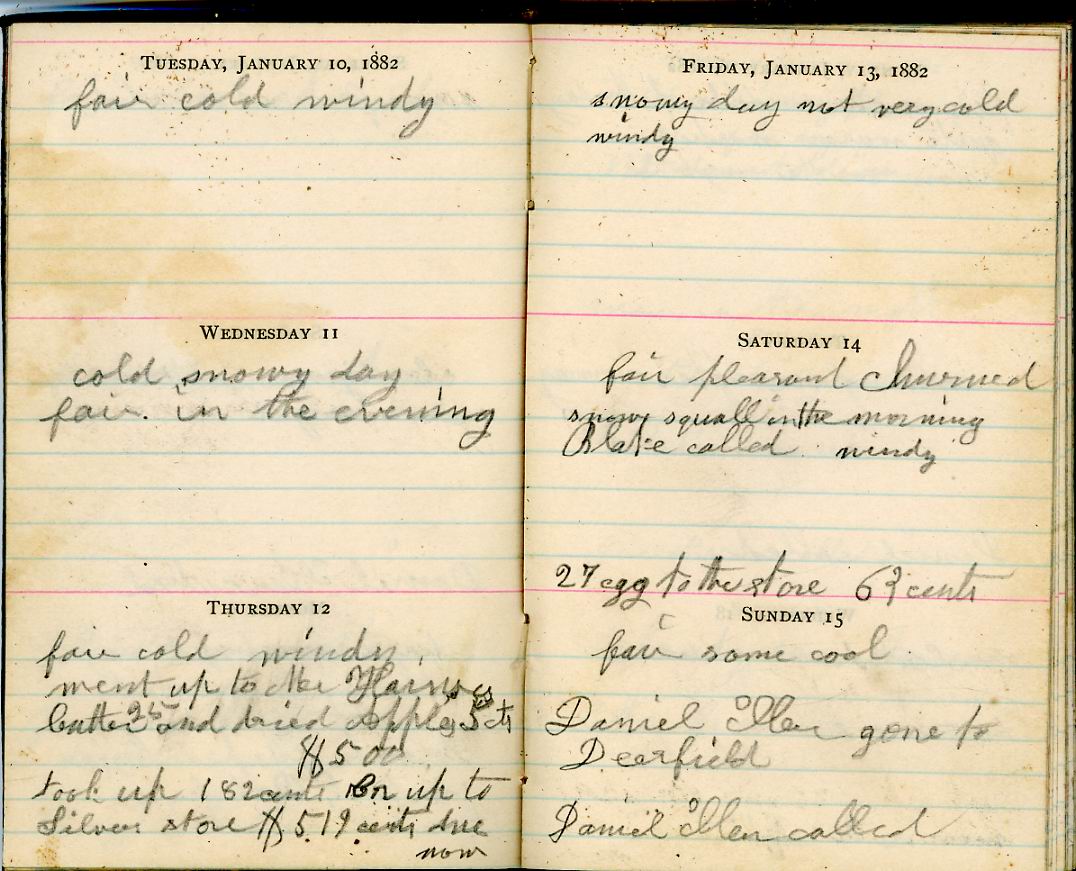 TUESDAY, JANUARY 10, 1882
fair cold windy
WEDNESDAY 11
cold snowy day
fair. in the evening
THURSDAY 12
fair cold windy
went up to Mr
butter 25 and dried apples 5 cts
$5 00
took up 182 cents up to
Silver store $ 519 cents due
now
FRIDAY, JANUARY 13, 1882
snowy day not very cold
windy
SATURDAY 14
fair pleasant Churned
snow squall in the morning
Blake called windy
27 egg to the store 63 cents
SUNDAY 15
fair some cool
Daniel Ellen gone to
Dearfield
Daniel Ellen called